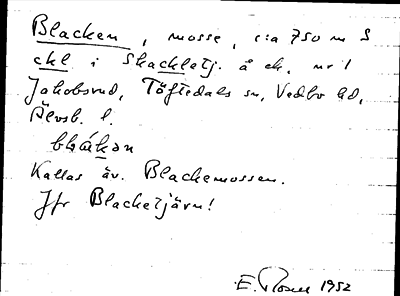 Blacken, mosse, c:a 750 m S
ekl i Shackletj. å ek. nr 1
Jakobsrud, Töftedals sn, Vedbo hd,
Älvsb. l.
blákan
Kallas äv. Blackemossen.
Jfr Blacketjärn!
E. Rosell 1952